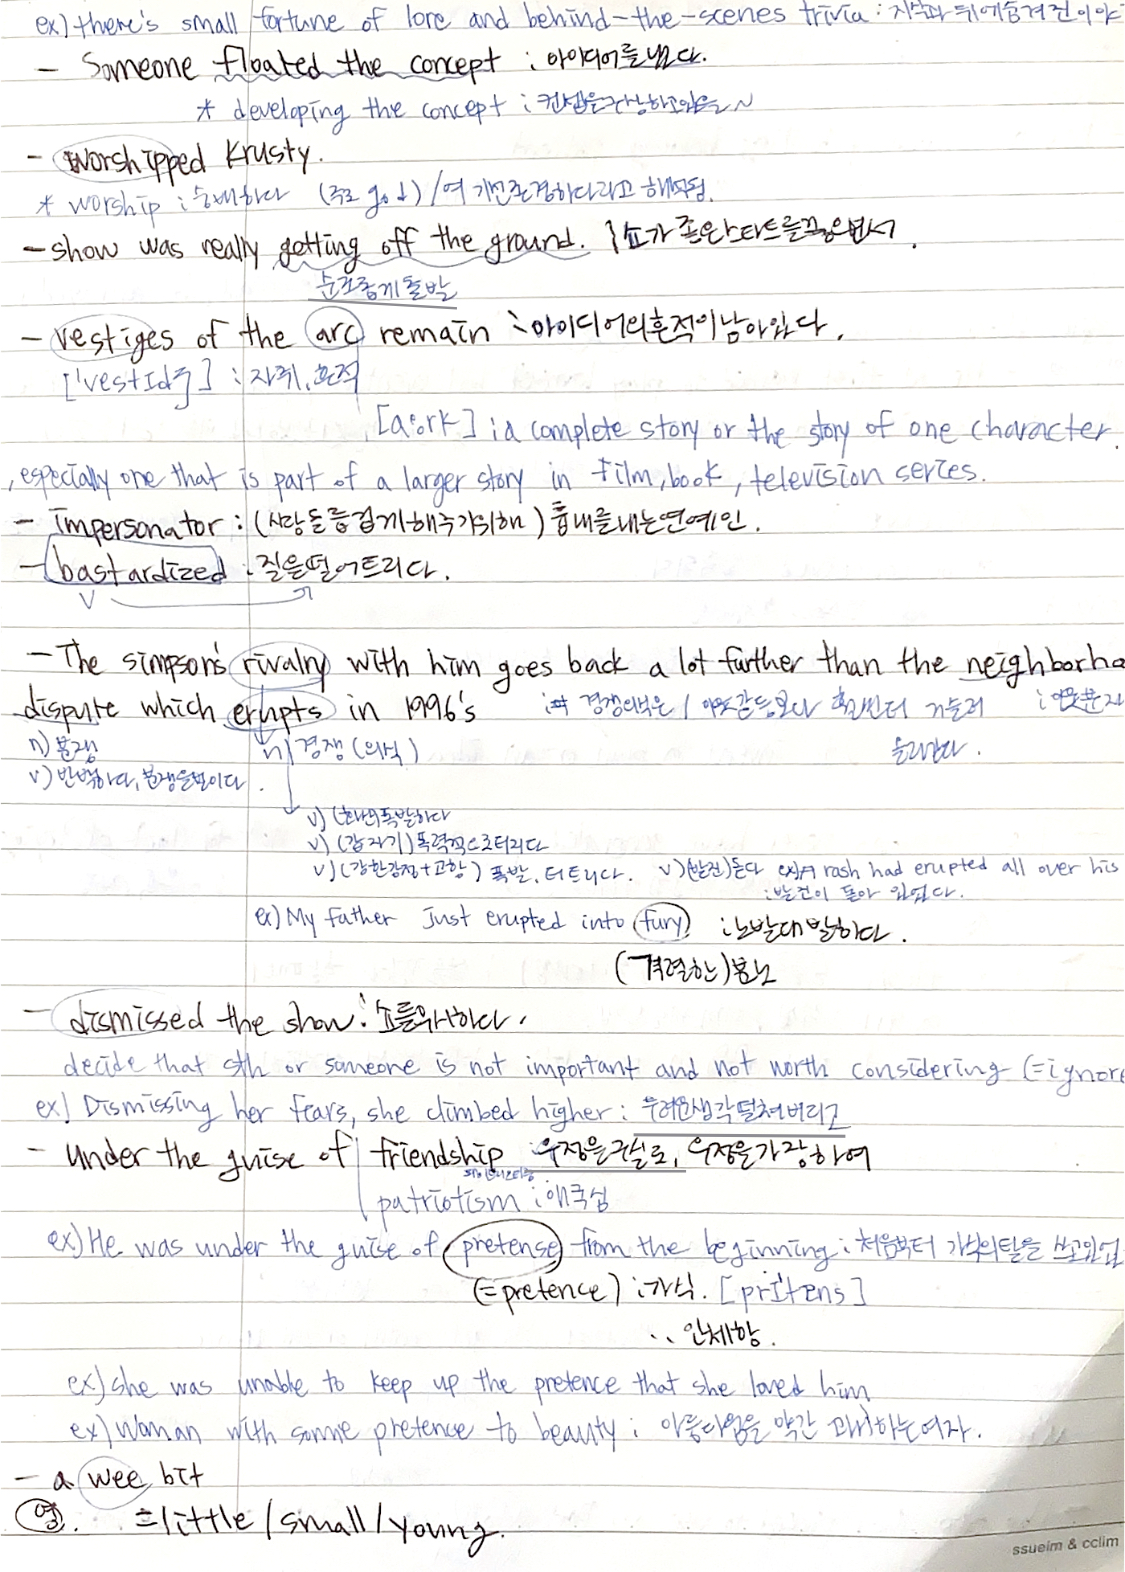 ex) there's small fortune of lore and behind-the-scenes trivia : 지식과 뒤에 숨겨진 이야
- Someone floated the concept : 아이디어를 냈다.
* developing the concept : 컨셉을 구상하고 있을~
- worshipped Krusty.
* worship : 숭배하다 (주로 god) / 여기선 존경하다라고 해석됨.
- show was really getting off the ground. 쇼가 좋은 스타트를 끊으면서.
순조롭게 출발
- vestiges of the arc remain : 아이디어의 흔적이 남아있다.
['vestIdʒ] : 자취, 흔적
[a:rk] : a complete story or the story of one character.
, especially one that is part of a larger story in film, book, television series.
- impersonator : (사람들 즐겁게 해주기 위해) 흉내를 내는 연예인.
- bastardized : 질을 떨어트리다.
v
- The simpson's rivalry with him goes back a lot further than the neighborho
dispute which erupts in 1996's : 경쟁의식은 이웃갈등보다 훨씬 더 거슬러 : 이웃분쟁
n) 분쟁 n) 경쟁 (의식) 올라간다.
v) 반박하다, 분쟁을 벌이다.
v) (화산이) 폭발하다
v) (갑자기) 폭력적으로 터지다
v) (강한감정+고함) 폭발, 터트리다. v) (발진) 돋다 ex) A rash had erupted all over his
: 발진이 돋아 있었다.
ex) My father just erupted into fury : 노발대발하다.
(격렬한) 분노
- dismissed the show : 쇼를 무시하다.
decide that sth or someone is not important and not worth considering (=ignore
ex) Dismissing her fears, she climbed higher : 두려운 생각 떨쳐버리고
- under the guise of friendship : 우정을 구실로, 우정을 가장하여
patriotism : 애국심
ex) He was under the guise of pretense from the beginning : 처음부터 가식의 탈을 쓰고 있었
(= pretence) : 가식. [prItens]
∴ 인체향.
ex) she was unable to keep up the pretence that she loved him
ex) woman with some pretence to beauty : 아름다움을 약간 과시하는 여자.
- a wee bit
영. = little / small / young.
ssueim & cclim